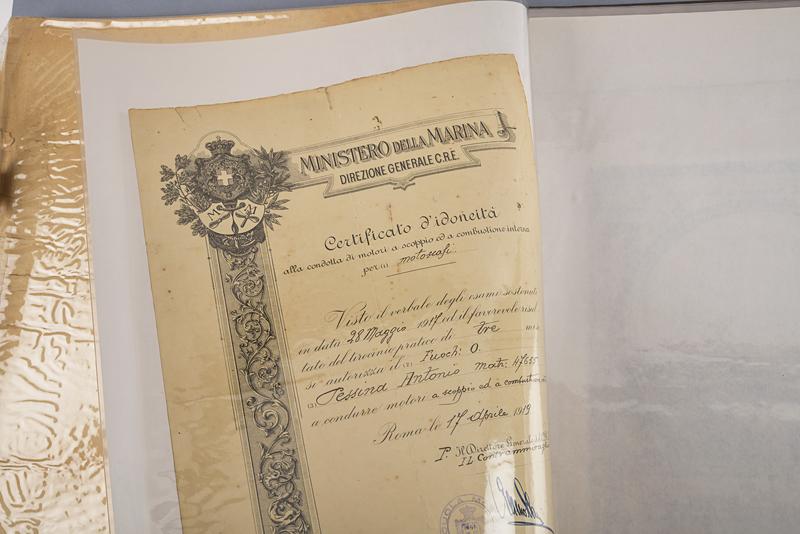 MINISTERO DELLA MARINA
DIREZIONE GENERALE C.R.E.
M M
Certificato d'idoneità
alla condotta di motori a scoppio ed a combustione interna
per (1) motoscafi
Visto il verbale degli esami sostenuti
in data 28 Maggio 1917 ed il favorevole risul
tato del tirocinio pratico di tre mesi
si autorizza il (2) Fuochi O.
(3) Pessina Antonio matr. 47655
a condurre motori a scoppio ed a combustione
Roma lì 17 Aprile 1919
P. Il Direttore Generale
IL Contrammiraglio